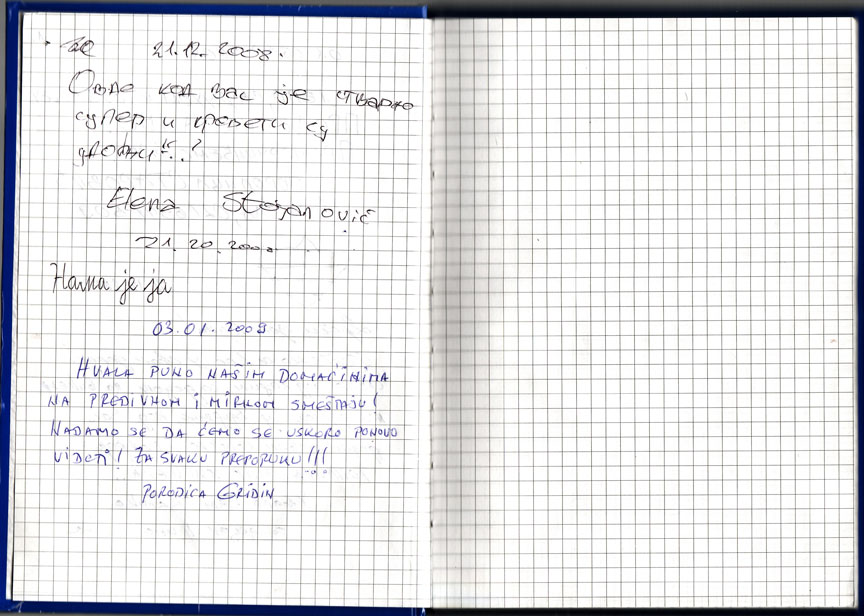 21.12.2008.
Овде код вас је стварно
супер и кревети су
удобни!..?
Elena Stojanović
21.20.2008
Havna je ja
03.01.2009
HVALA PUNO NAŠIM DOMAĆINIMA
NA PREDIVNOM I MIRNOM SMEŠTAJU!
NADAMO SE DA ĆEMO SE USKORO PONOVO
VIDETI! ZA SVAKU PREPORUKU!!!
PORODICA GRIDIN